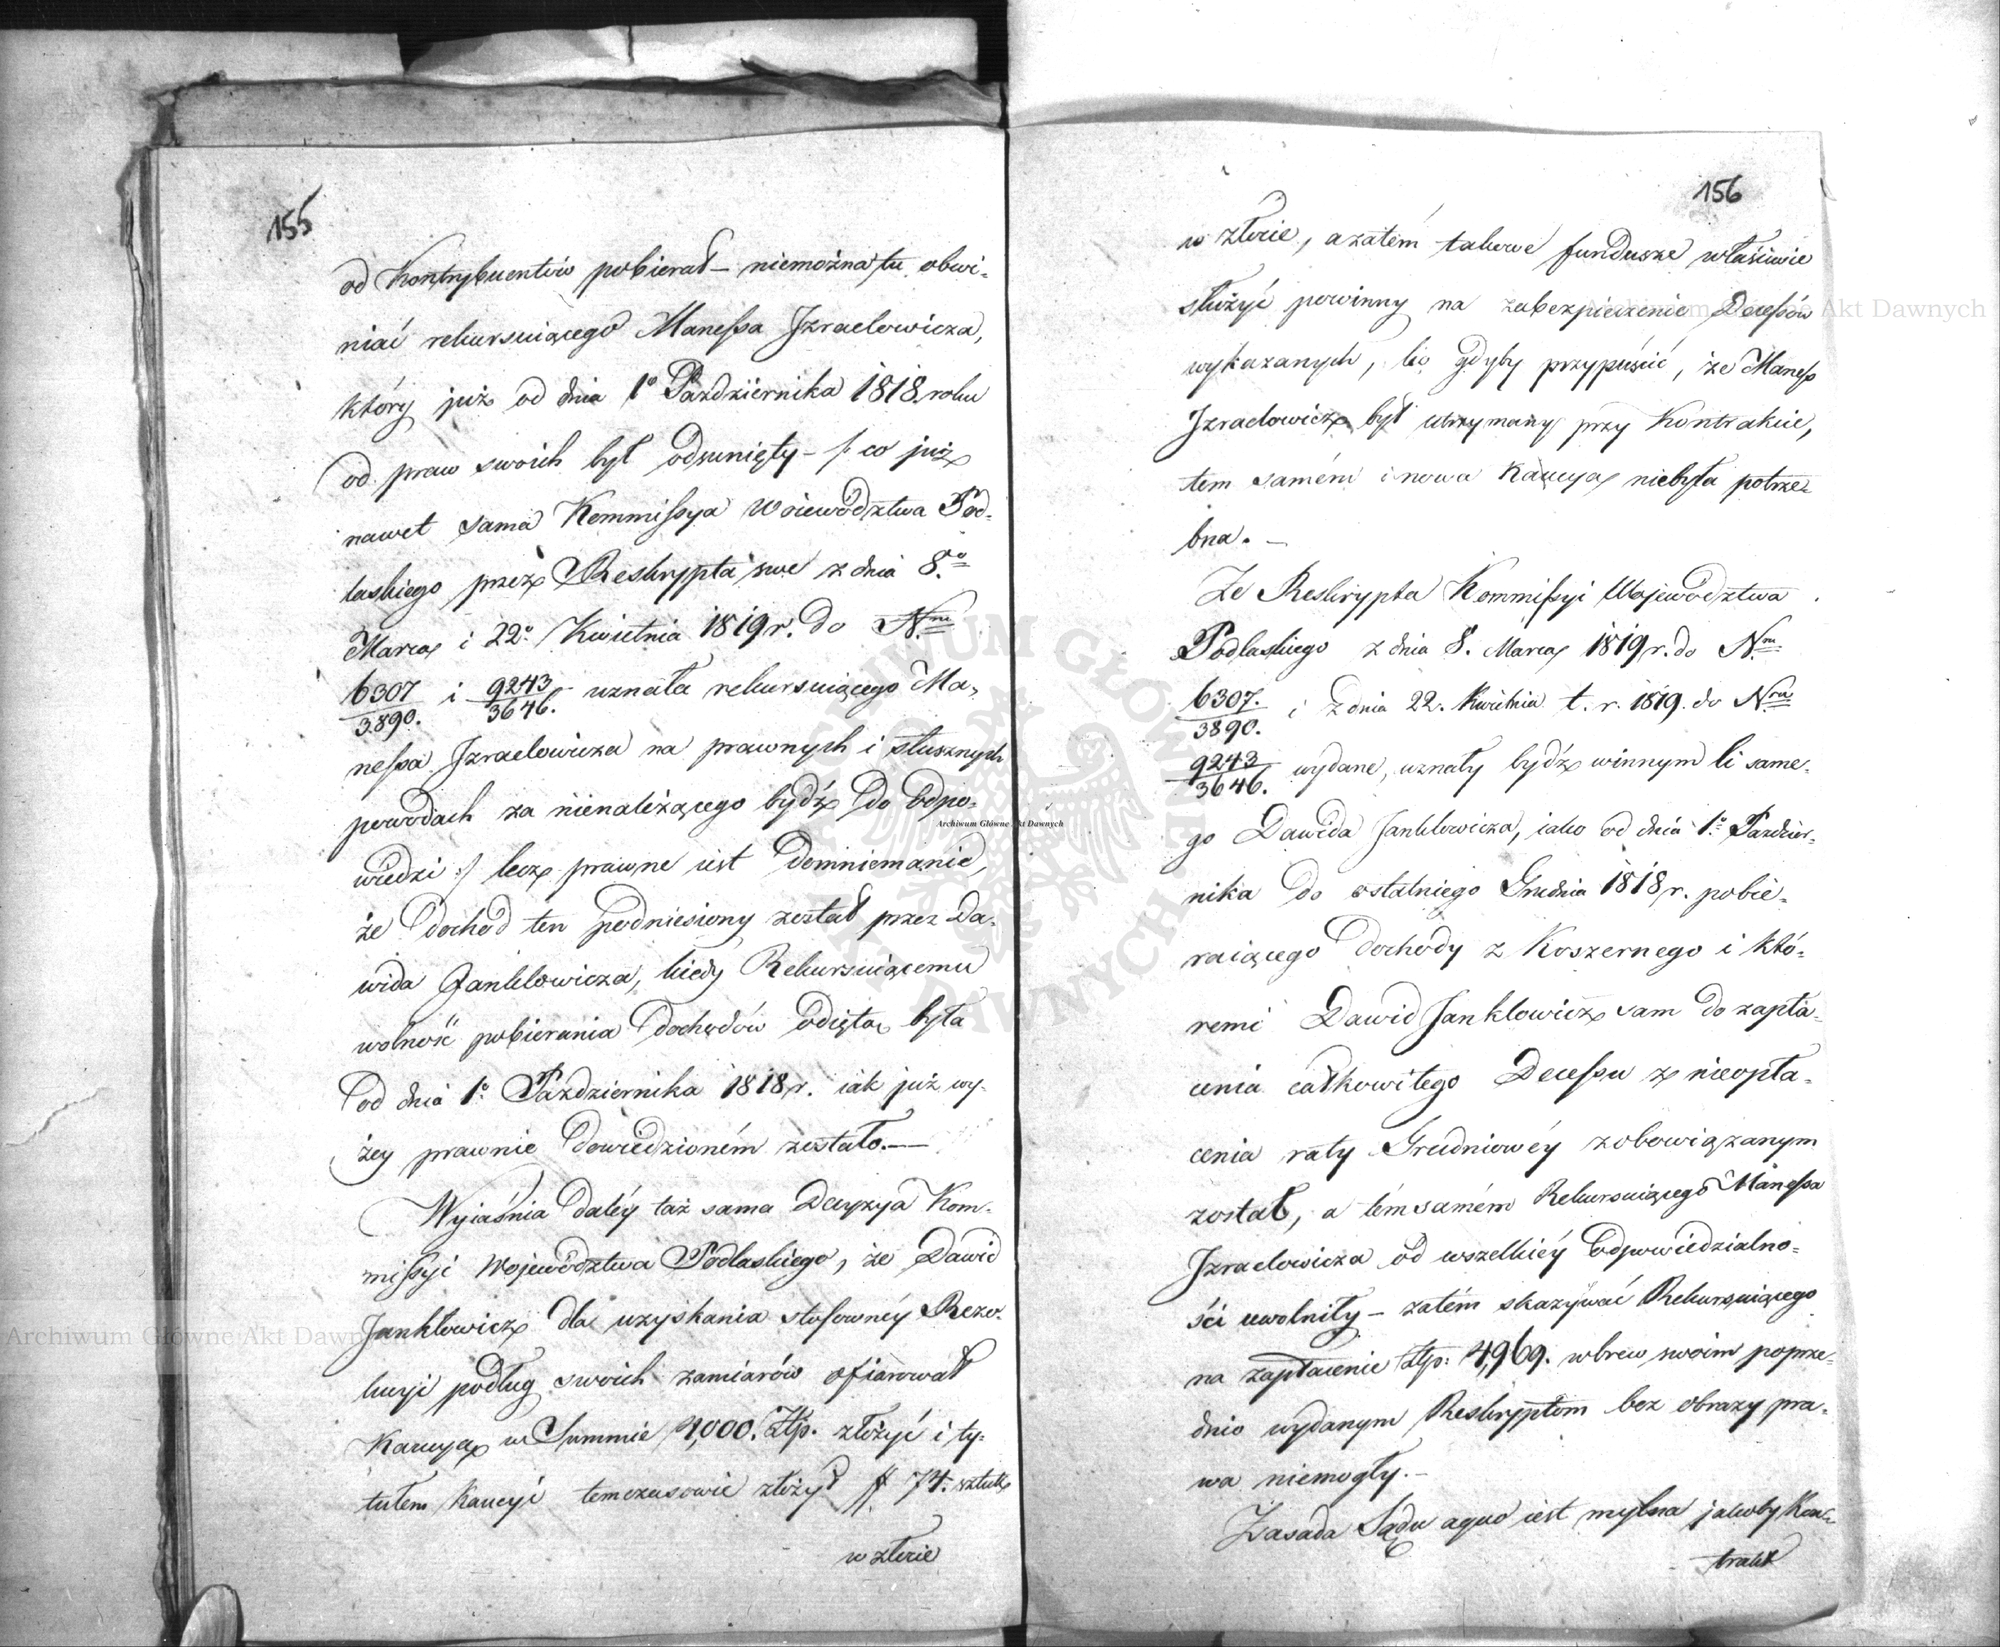 155
od Kontrybuentów pobierał – niemożna tu obwi-
niać rekursuiącego Manessa Izraelowicza,
który już od dnia 1º Października 1818. roku
od praw swoich był odsunięty – /: co już
nawet sama Kommissya Woiewództwa Pod-
laskiego przez Reskrypta swe z dnia 8.º
Marca i 22º Kwietnia 1819 r. do Nru
6307/3890. i 9243/3646. uznała rekursuiącego Ma-
nessa Izraelowicza na prawnych i słusznych
powodach za nienależącego bydź do odpo-
wiedzi :/ lecz prawne iest domniemanie,
że dochód ten podniesiony został przez Da-
wida Janklowicza, kiedy Rekursuiącemu
wolność pobierania dochodów odięta była
od dnia 1º Października 1818 r. iak już wy-
żey prawnie dowiedzioném zostało. —
Wyiaśnia daléy taż sama Decyzya Kom-
missyi Województwa Podlaskiego, że Dawid
Janklowicz dla uzyskania stosownéy Rezo-
lucyi podług swoich zamiarów ofiarował
Kaucyą w Summie 4,000. Złp. złożyć i ty-
tułem Kaucyi temczasowie złożył # 74. sztuk
w złocie
156
w złocie, a zatém takowe fundusze właściwie
służyć powinny na zabezpieczenie Decessów
wykazanych, bo gdyby przypuścić, że Maness
Izraelowicz był utrzymany przy Kontrakcie,
tem samém i nowa Kaucya niebyła potrze-
bna. —
Ze Reskrypta Kommissyi Województwa
Podlaskiego z dnia 8. Marca 1819 r. do Nru
6307./3890. i z dnia 22. Kwietnia t. r. 1819. do Nru
9243/3646. wydane, uznały bydź winnym li same-
go Dawida Janklowicza, iako od dnia 1º Paździer-
nika do ostatniego Grudnia 1818 r. pobie-
raiącego dochody z Koszernego i któ-
remi Dawid Janklowicz sam do zapła-
cenia całkowitego Decessu z nieopła-
cenia raty Grudniowéy zobowiązanym
został, a témsamém Rekursuiącego Manessa
Izraelowicza od wszelkiéy odpowiedzialno-
ści uwolniły – zatém skazywać Rekursuiącego
na zapłacenie Złp: 4,969. wbrew swoim poprze-
dnio wydanym Reskryptom bez obrazy pra-
wa niemogły. –
Zasada Sądu a quo iest mylna jakoby Kon-
trakt
Archiwum Główne Akt Dawnych
Archiwum Główne Akt Dawnych
Archiwum Główne Akt Dawnych
ARCHIWUM GŁÓWNE AKT DAWNYCH